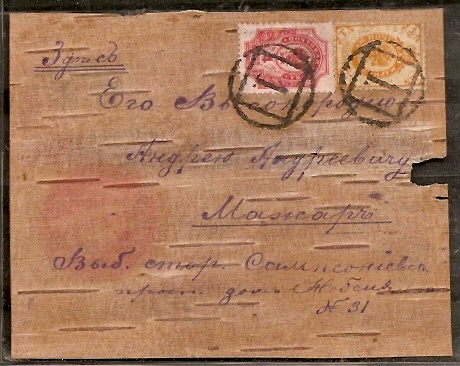 Здѣсь
Его Высокородію
Андрею Андреевичу
Выб. стор. Сампсоніевск.
просп. домъ
№ 31